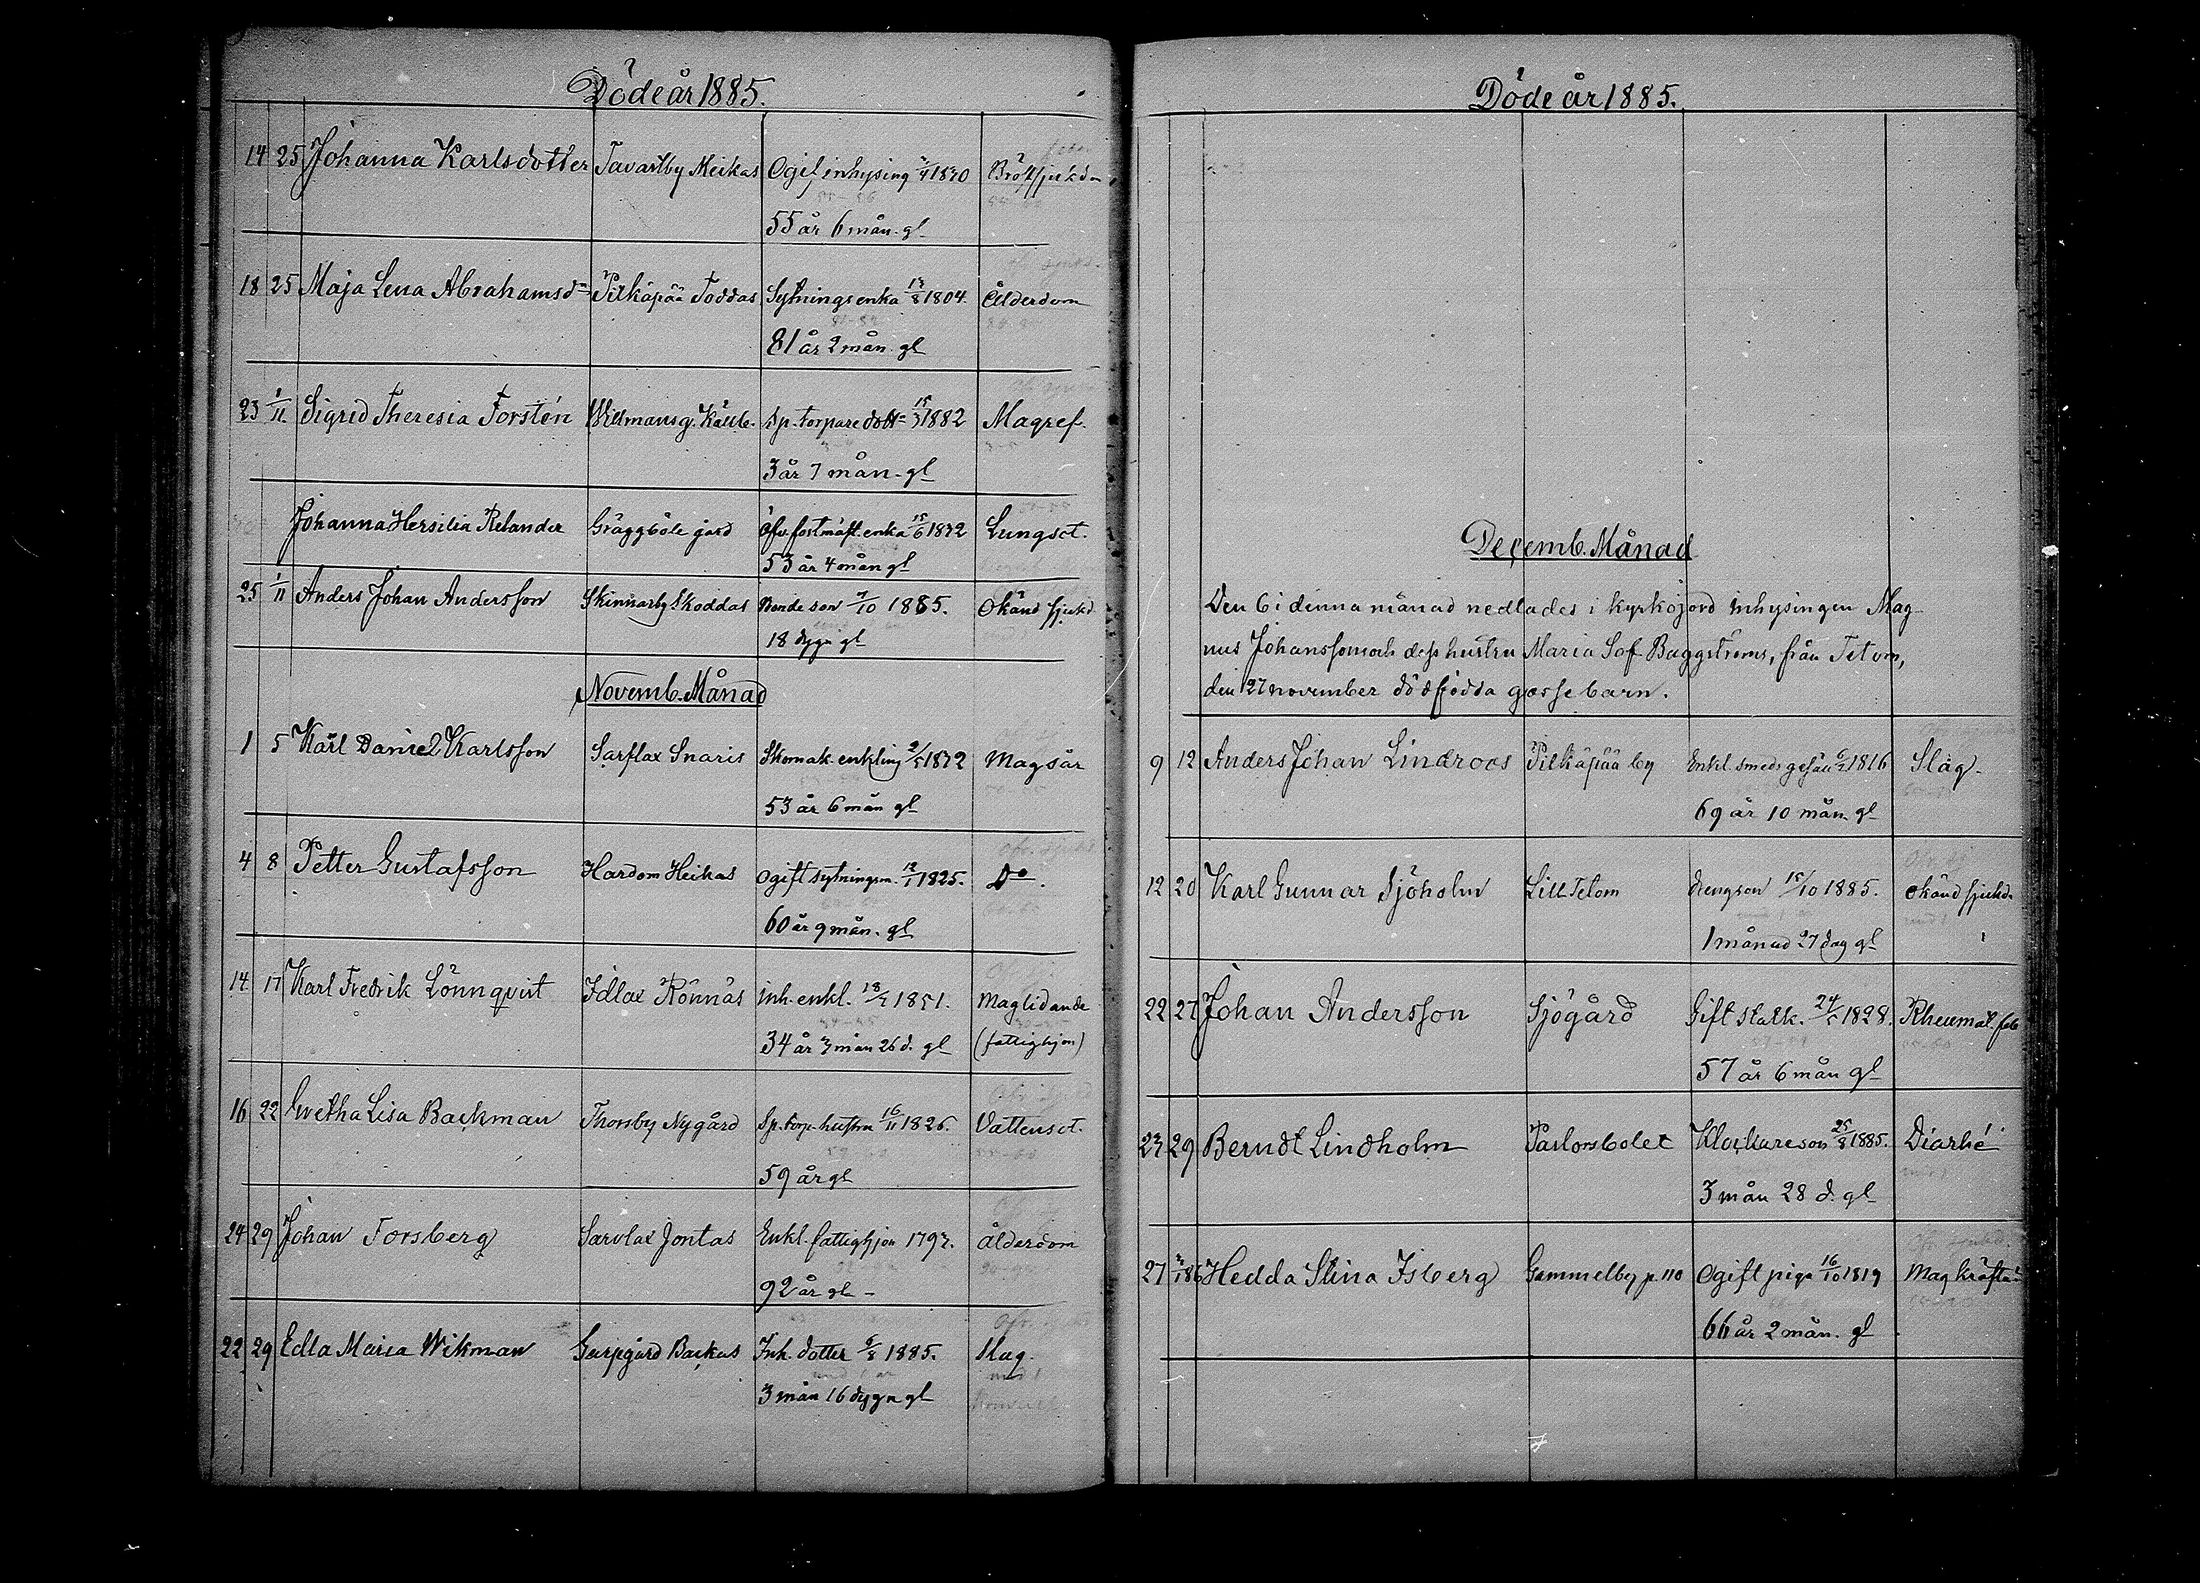 Döde år 1885.
14 25 Johanna Karlsdotter Tavastby Meikas Ogif. inhysing 1830 Bröstsjukdm
55 år 6 mån. gl
18 25 Maja Lena Abrahamsd= Pitkäpää Toddas Sytningsenka 13/8 1804. Ålderdom
81 år 2 mån. gl
23 1/11. Sigrid Theresia Forstén Willmansg. Sp. torpare dott= 15/3 1882 Magref.
3 år 7 mån. gl
Johanna Hersilia Relander Gräggböle gård Öfv. forstmäst. enka 15/6 1832 Lungsot.
53 år 4 mån gl
25 1/11 Anders Johan Andersson Skinnarby Skoddas Bonde son 7/10 1885. Okänd sjukd.
18 dygn gl
Novemb. Månad
1 5 Karl Daniel Karlsson Sarflax Snaris Skomak. enkling 2/5 1832 Magsår
53 år 6 mån gl
4 8 Petter Gustafsson Hardom Heikas Ogift sytningsm. 12/1 1825. Do.
60 år 9 mån. gl
14 17 Karl Fredrik Lönnqvist Idlax Rönnäs Inh. enkl. 18/7 1851. Maglidande
34 år 3 mån 26 d. gl (fattighjon)
16 22 Gretha Lisa Backman Thorsby Nygård Sp. torp. hustru 16/11 1826. Vattensot.
59 år gl
24 29 Johan Forsberg Sarvlax Jontas Enkl. fattighjon 1793. Ålderdom
92 år gl -
22 29 Edla Maria Wikman Garpgård Backas Inh. dotter 6/8 1885. Slag.
3 mån 16 dygn gl
Döde år 1885.
Decemb. Månad
Den 6 i denna månad nedlades i kyrkojord inhysingen Mag-
nus Johanssons och dess hustru Maria Sof. Baggströms, från Tetom,
den 27 november dödfödda gossebarn.
9 12 Anders Johan Lindroos Pitkäpää by Enkl. smeds gesäll 6/2 1816 Slag.
69 år 10 mån. gl
12 20 Karl Gunnar Sjöholm Lill Tetom drengson 15/10 1885. okänd sjukd.
1 månad 27 dag gl
22 27 Johan Andersson Sjögård Gift statk. 24/5 1828. Rheumat. feb
57 år 6 mån gl
23 29 Berndt Lindholm Pastorsbolet Klockareson 25/8 1885. Diarhé
3 mån 28 d. gl
27 3/1 86 Hedda Stina Isberg Gammelby p. 110 Ogift piga 16/10 1819 Mag kräfta
66 år 2 mån. gl